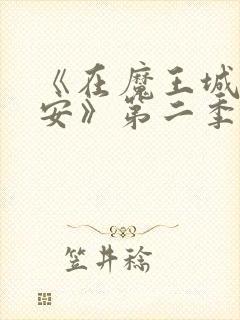 《在魔王城
安》第二季
笠井稔